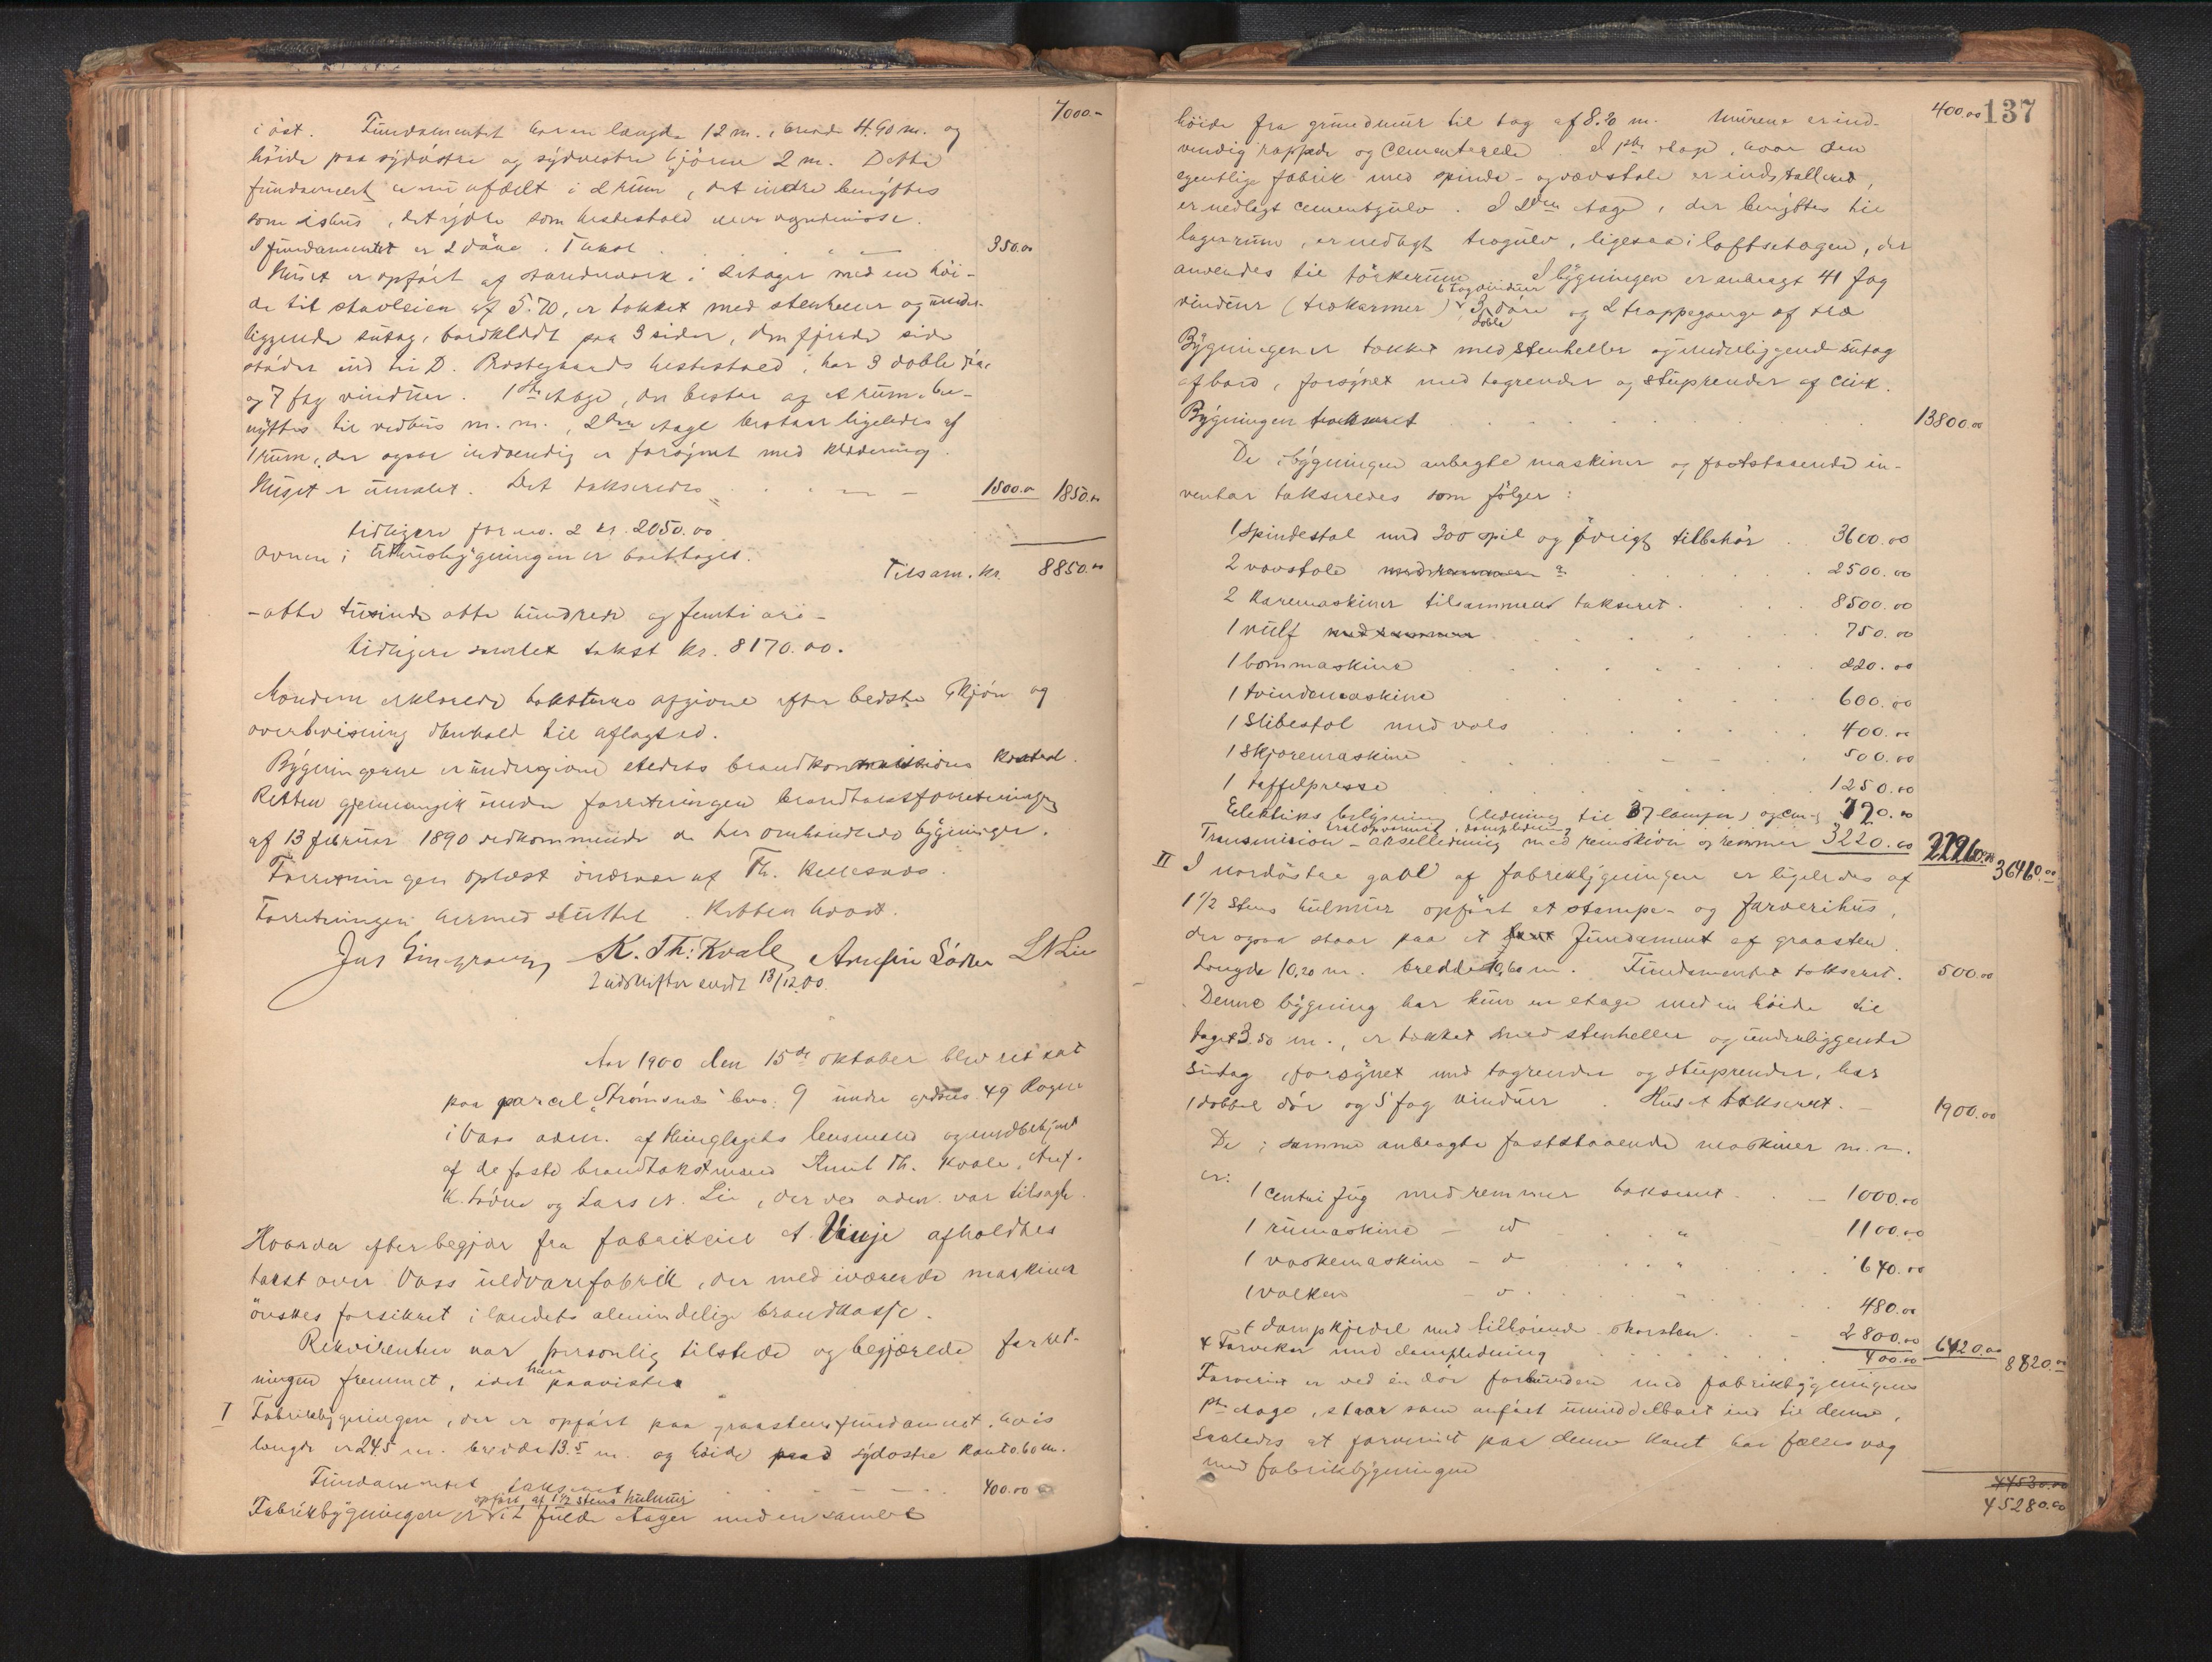 7000.-
i øst. Fundamentet har en længde 12 m., bredde 4.90 m. og
høide paa sydøstre og sydvestre hjørne 2 m. Dette
fundament er nu afdelt i 2 rum, det indre benyttes
som ishus, det ydre som hestestald
I fundamentet er 2 døre. Takst 350.00
Huset er opført af standerværk i 2 etager med en høi-
de til stavleien af 5.70, er tækket med stenheller og under-
liggende sutag, bordklædt paa 3 sider, den fjerde side
støder ind til D. Rostegaards hestestald, har 3 doble døre
og 7 fag vinduer. 1ste etage, der bestaar af et rum, be-
nyttes til vedhus m. m., 2den etage bestaar ligeledes af
1 rum, der ogsaa indvendig er forsynet med klædning.
Huset er umalet. Det takseredes 1500.00 1850.00
tidligere for no. 2 kr. 2050.00
Ovnen i uthusbygningen er borttaget.
Tilsam. kr. 8850.00
- otte tusinde otte hundrede og femti ører -
tidligere samlet takst kr. 8170.00.
Mændene erklærede taksterne afgivne efter bedste skjøn og
overbevisning i henhold til aflagt ed.
Bygningerne er undergivne stedets brandkommissions kontrol.
Retten gjennemgik under forretningen brandtakstforretningen
af 13 februar 1890 vedkommende de her omhandlede bygninger.
Forretningen oplæst i nærvær af Th.
Forretningen hermed sluttet. Retten hævet.
K. Th: Kvale Anfin Lødne L N Lie
2 udskrifter sendt 13/12 00.
Aar 1900 den 15de oktober blev ret sat
paa parcel "Strømsnes" bno. 9 under gaardsno. 49 Rogne
i Voss adm. af thinglagets lensmand og medbetjent
af de faste brandtakstmænd Knut Th. Kvale, Anf.
K. Lødne og Lars N. Lie, der ved adm. var tilsagte.
Hvorda efter begjær fra fabrikeier A Vinje afholdtes
takst over Voss uldvarefabrik, der med iværende maskiner
ønskes forsikret i landets almindelige brandkasse.
Rekvirenten var personlig tilstede og begjærede forret-
ningen fremmet, idet han paaviste
I Fabrikbygningen, der er opført paa graastensfundament, hvis
længde er 24.5 m. bredde 13.5 m. og høide paa sydøstre kant 0.60 m.
Fundamentet takseret 400.00
opført af 1 1/2 stens hulmur
Fabrikbygningen er i 2 fulde etager med en samlet
400.00 137
høide fra grundmur til tag af 8.20 m. Murene er ind-
vendig rappede og cementerede. I 1ste etage, hvor den
egentlige fabrik med spinde- og vævstole er installered,
er nedlagt cementgulv. I 2den etage, der benyttes til
lagerrum, er nedlagt trægulv, ligesaa i loftsetagen, der
anvendes til tørkerum. I bygningen er anbragt 41 fag
6 tagvinduer
vinduer (trækarmer) 3 døre og 2 trappegange af træ
doble
Bygningen er tækket med stenheller og underliggende sutag
af bord, forsynet med tagrender og stuprender af zink.
Bygningen takseret 13800.00
De i bygningen anbragte maskiner og fastsiddende in-
ventar takseredes som følger:
1 spindestol med 300 spil og øvrigt tilbehør 3600.00
2 vævstole med remmer 2500.00
2 karemaskiner tilsammen takseret 8500.00
1 vulf med remmer 750.00
1 bommaskine 220.00
1 tvindemaskine 600.00
1 slibestol med vals 400.00
1 skjæremaskine 500.00
1 taffelpresse 1250.00
Elektrisk belysning (ledning til 37 lamper) 720.00
Transmission - akselledning med remskiver og remmer 3220.00 22260.00 36460.00
II I nordøstre gavl af fabrikbygningen er ligeledes af
1 1/2 stens hulmur opført et stampe- og farverihus,
der ogsaa staar paa et fundament af graasten.
Længde 10,20 m. bredde 10,60 m. Fundamentet takseret. 500.00
Denne bygning har kun en etage med en høide til
taget 3.50 m., er tækket med stenheller og underliggende
sutag, forsynet med tagrender og stuprender, har
1 dobbel dør og 5 fag vinduer. Huset takseret. 1900.00
De i samme anbragte faststaaende maskiner m. m.
er:
1 centrifug med remmer takseret 1000.00
1 rumaskine - d 1100.00
1 vaskemaskine - d 640.00
1 valker - d 480.00
1 dampkjedel med tilhørende skorsten 2800.00
4 Farvekar med dampledning 400.00 6420.00 8820.00
Farveriet er ved én dør forbunden med fabrikbygningens
1ste etage, staar som anført umiddelbart ind til denne,
saaledes at farveriet paa denne kant har fælles væg
med fabrikbygningen
44530.00
45280.00